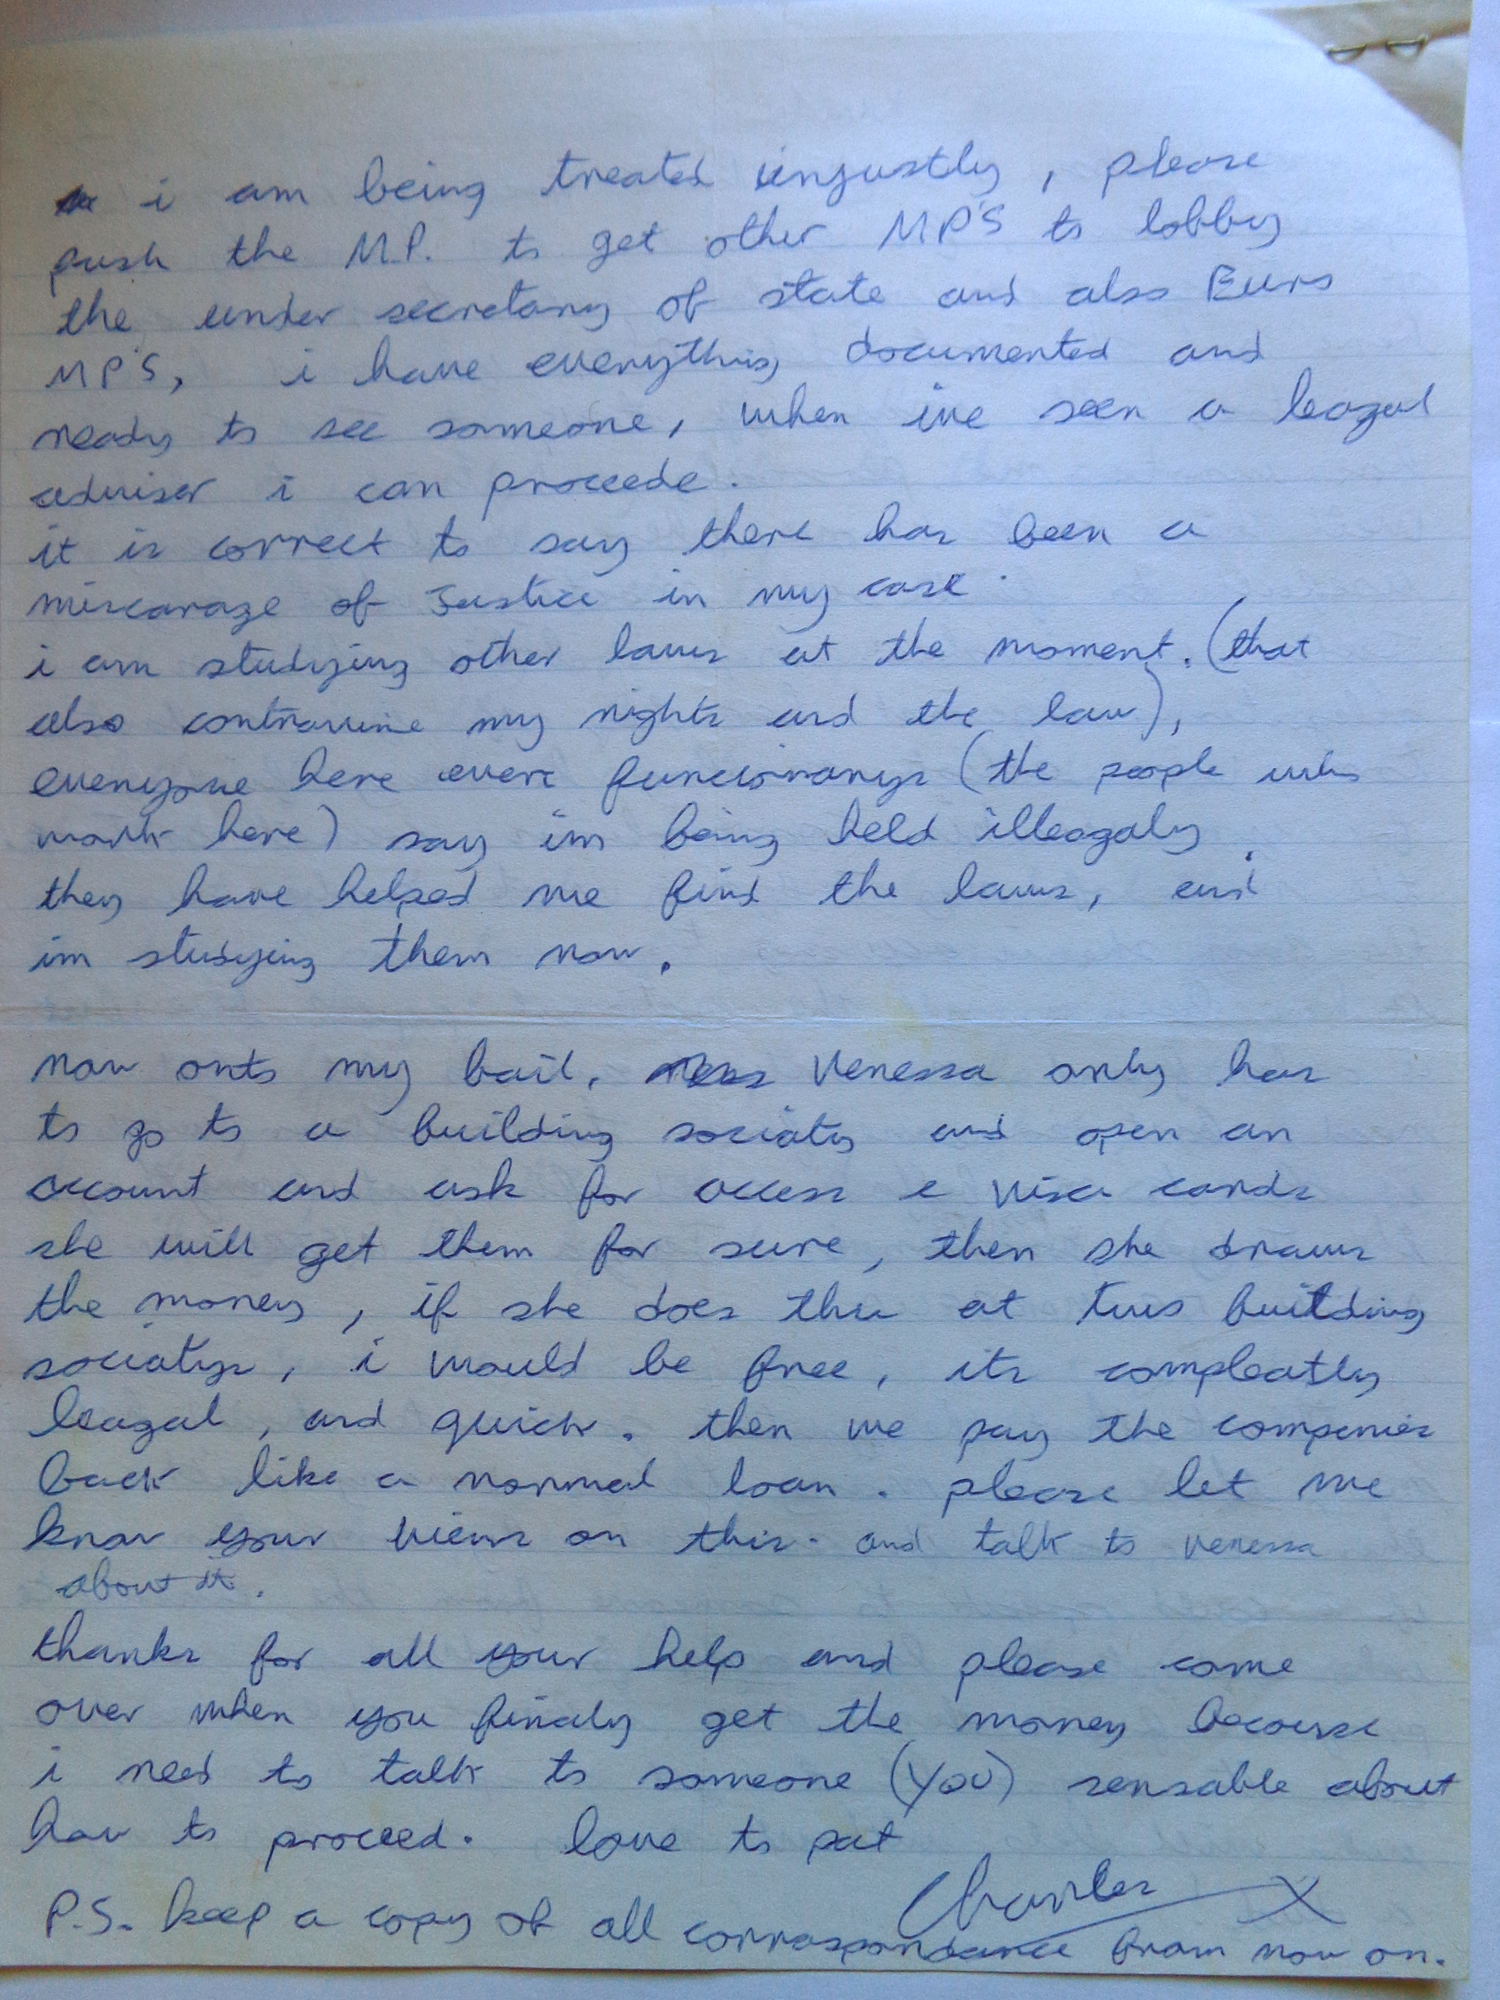 i am being treated unjustly, please
push the M.P. to get other MP'S to lobby
the under secretary of state and also Euro
MP'S, i have everything documented and
ready to see someone, when ive seen a leagal
adviser i can proceede.
it is correct to say there has been a
miscarage of Justice in my case.
i am studying other laws at the moment. (that
also contravine my rights and the law),
everyone here even funcionarys (the people who
work here) say im being held illeagaly.
they have helped me find the laws, and
im studying them now.
now onto my bail. Venessa only has
to go to a building sociaty and open an
account and ask for access e visa cards
she will get them for sure, then she draws
the money, if she does this at two building
sociatys, i would be free, its compleatly
leagal, and quick. then we pay the companies
back like a normal loan. please let me
know your views on this. and talk to venessa
about it.
thanks for all your help and please come
over when you finaly get the money because
i need to talk to someone (YOU) sensable about
how to proceed. love to pat
Charles X
P.S. keep a copy of all corraspondance from now on.